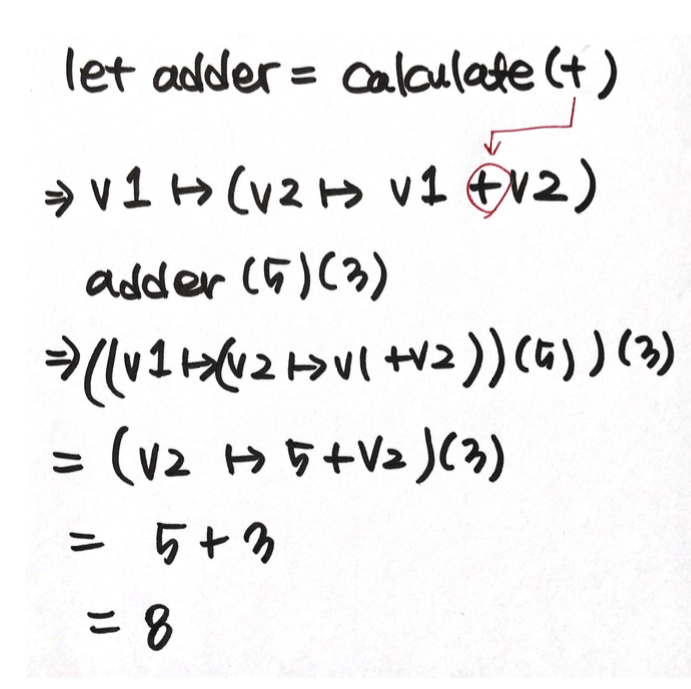 let adder = calculate(+)
⇒ v1 ↦ (v2 ↦ v1 + v2)
adder (5)(3)
⇒((v1↦(v2↦v1+v2))(5))(3)
= (v2 ↦ 5+v2)(3)
= 5+3
= 8